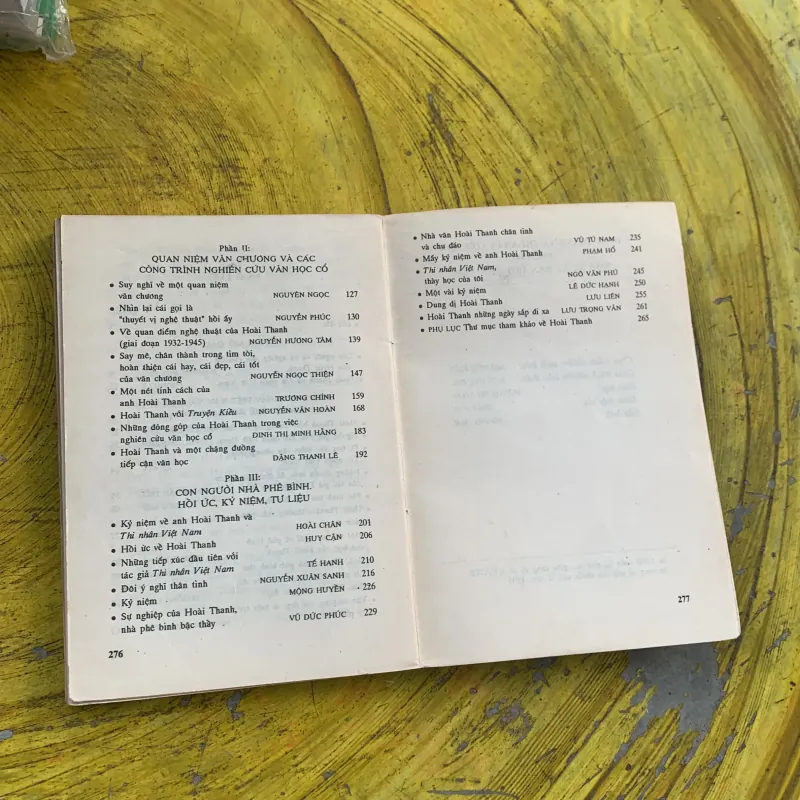 Phần II:
QUAN NIỆM VĂN CHƯƠNG VÀ CÁC
CÔNG TRÌNH NGHIÊN CỨU VĂN HỌC CỔ
• Suy nghĩ về một quan niệm
văn chương NGUYÊN NGỌC 127
• Nhìn lại cái gọi là
"thuyết vị nghệ thuật" hồi ấy NGUYỄN PHÚC 130
• Về quan điểm nghệ thuật của Hoài Thanh
(giai đoạn 1932-1945) NGUYỄN HƯƠNG TÂM 139
• Say mê, chân thành trong tìm tòi,
hoàn thiện cái hay, cái đẹp, cái tốt
của văn chương NGUYỄN NGỌC THIỆN 147
• Một nét tính cách của
anh Hoài Thanh TRƯƠNG CHÍNH 159
• Hoài Thanh với Truyện Kiều NGUYỄN VĂN HOÀN 168
• Những đóng góp của Hoài Thanh trong việc
nghiên cứu văn học cổ ĐINH THỊ MINH HẰNG 183
• Hoài Thanh và một chặng đường
tiếp cận văn học ĐẶNG THANH LÊ 192
Phần III:
CON NGƯỜI NHÀ PHÊ BÌNH.
HỒI ỨC, KỶ NIỆM, TƯ LIỆU
• Kỷ niệm về anh Hoài Thanh và
Thi nhân Việt Nam HOÀI CHÂN 201
• Hồi ức về Hoài Thanh HUY CẬN 206
• Những tiếp xúc đầu tiên với
tác giả Thi nhân Việt Nam TẾ HANH 210
• Đôi ý nghĩ thân tình NGUYỄN XUÂN SANH 216
• Kỷ niệm MỘNG HUYỀN 226
• Sự nghiệp của Hoài Thanh,
nhà phê bình bậc thầy VŨ ĐỨC PHÚC 229
276
• Nhà văn Hoài Thanh chân tình
và chu đáo VŨ TÚ NAM 235
• Mấy kỷ niệm về anh Hoài Thanh PHẠM HỔ 241
• Thi nhân Việt Nam,
thày học của tôi NGÔ VĂN PHÚ 245
• Một vài kỷ niệm LÊ ĐỨC HẠNH 250
• Dung dị Hoài Thanh LƯU LIÊN 255
• Hoài Thanh những ngày sắp đi xa LƯU TRỌNG VĂN 261
• PHỤ LỤC Thư mục tham khảo về Hoài Thanh 265
277